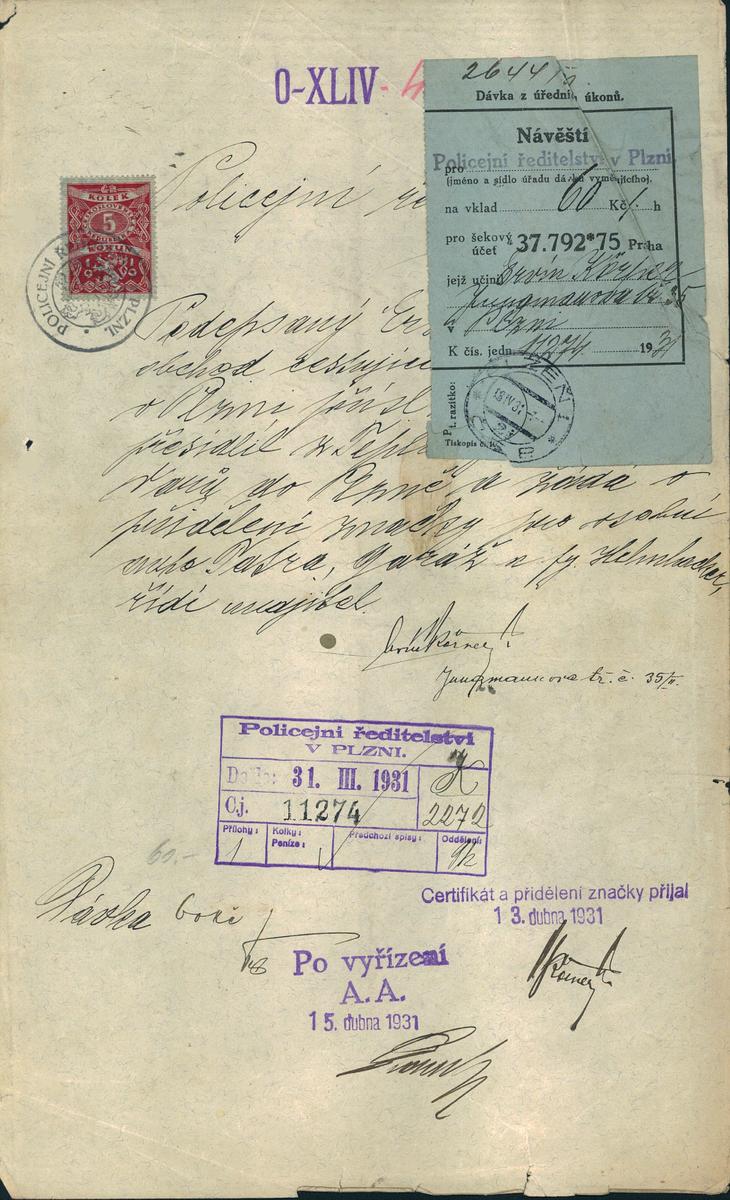 O-XLIV-4
2644
Dávka z úředních úkonů.
Návěští
Policejní ředitelství v Plzni
pro
(jméno a sídlo úřadu dávku vyměřujícího).
na vklad 60 Kč h
pro šekový účet 37.792*75 Praha
jejž učinil Ervín Körner
Jungmannova tř. 35
v Plzni
K čís. jedn. 11274 1931
P. t. razítko:
Tiskopis č.
PLZEŇ 1
18 IV 31
KOLEK
5
KORUN
1919
POLICEJNÍ Ř
PLZNI.
Policejní ře
Podepsaný Er
obchod. cestující
v Plzni přísl
přesídlil z Tepl
Varů do Plzně a žádá o
přidělení značky pro osobní
auto Tatra, Garáž u fy. Helmbacher,
řídí majitel.
Ervín Körner
Jungmannova tř. č. 35/II.
Policejní ředitelství
V PLZNI.
Došlo: 31. III. 1931
Č.j. 11274
2272
Přílohy: 1
Kolky:
Peníze:
Předchozí spisy:
Oddělení:
60.-
Dávka 60 Kč
Certifikát a přidělení značky přijal
13. dubna 1931
Körner
Po vyřízení
A.A.
15. dubna 1931